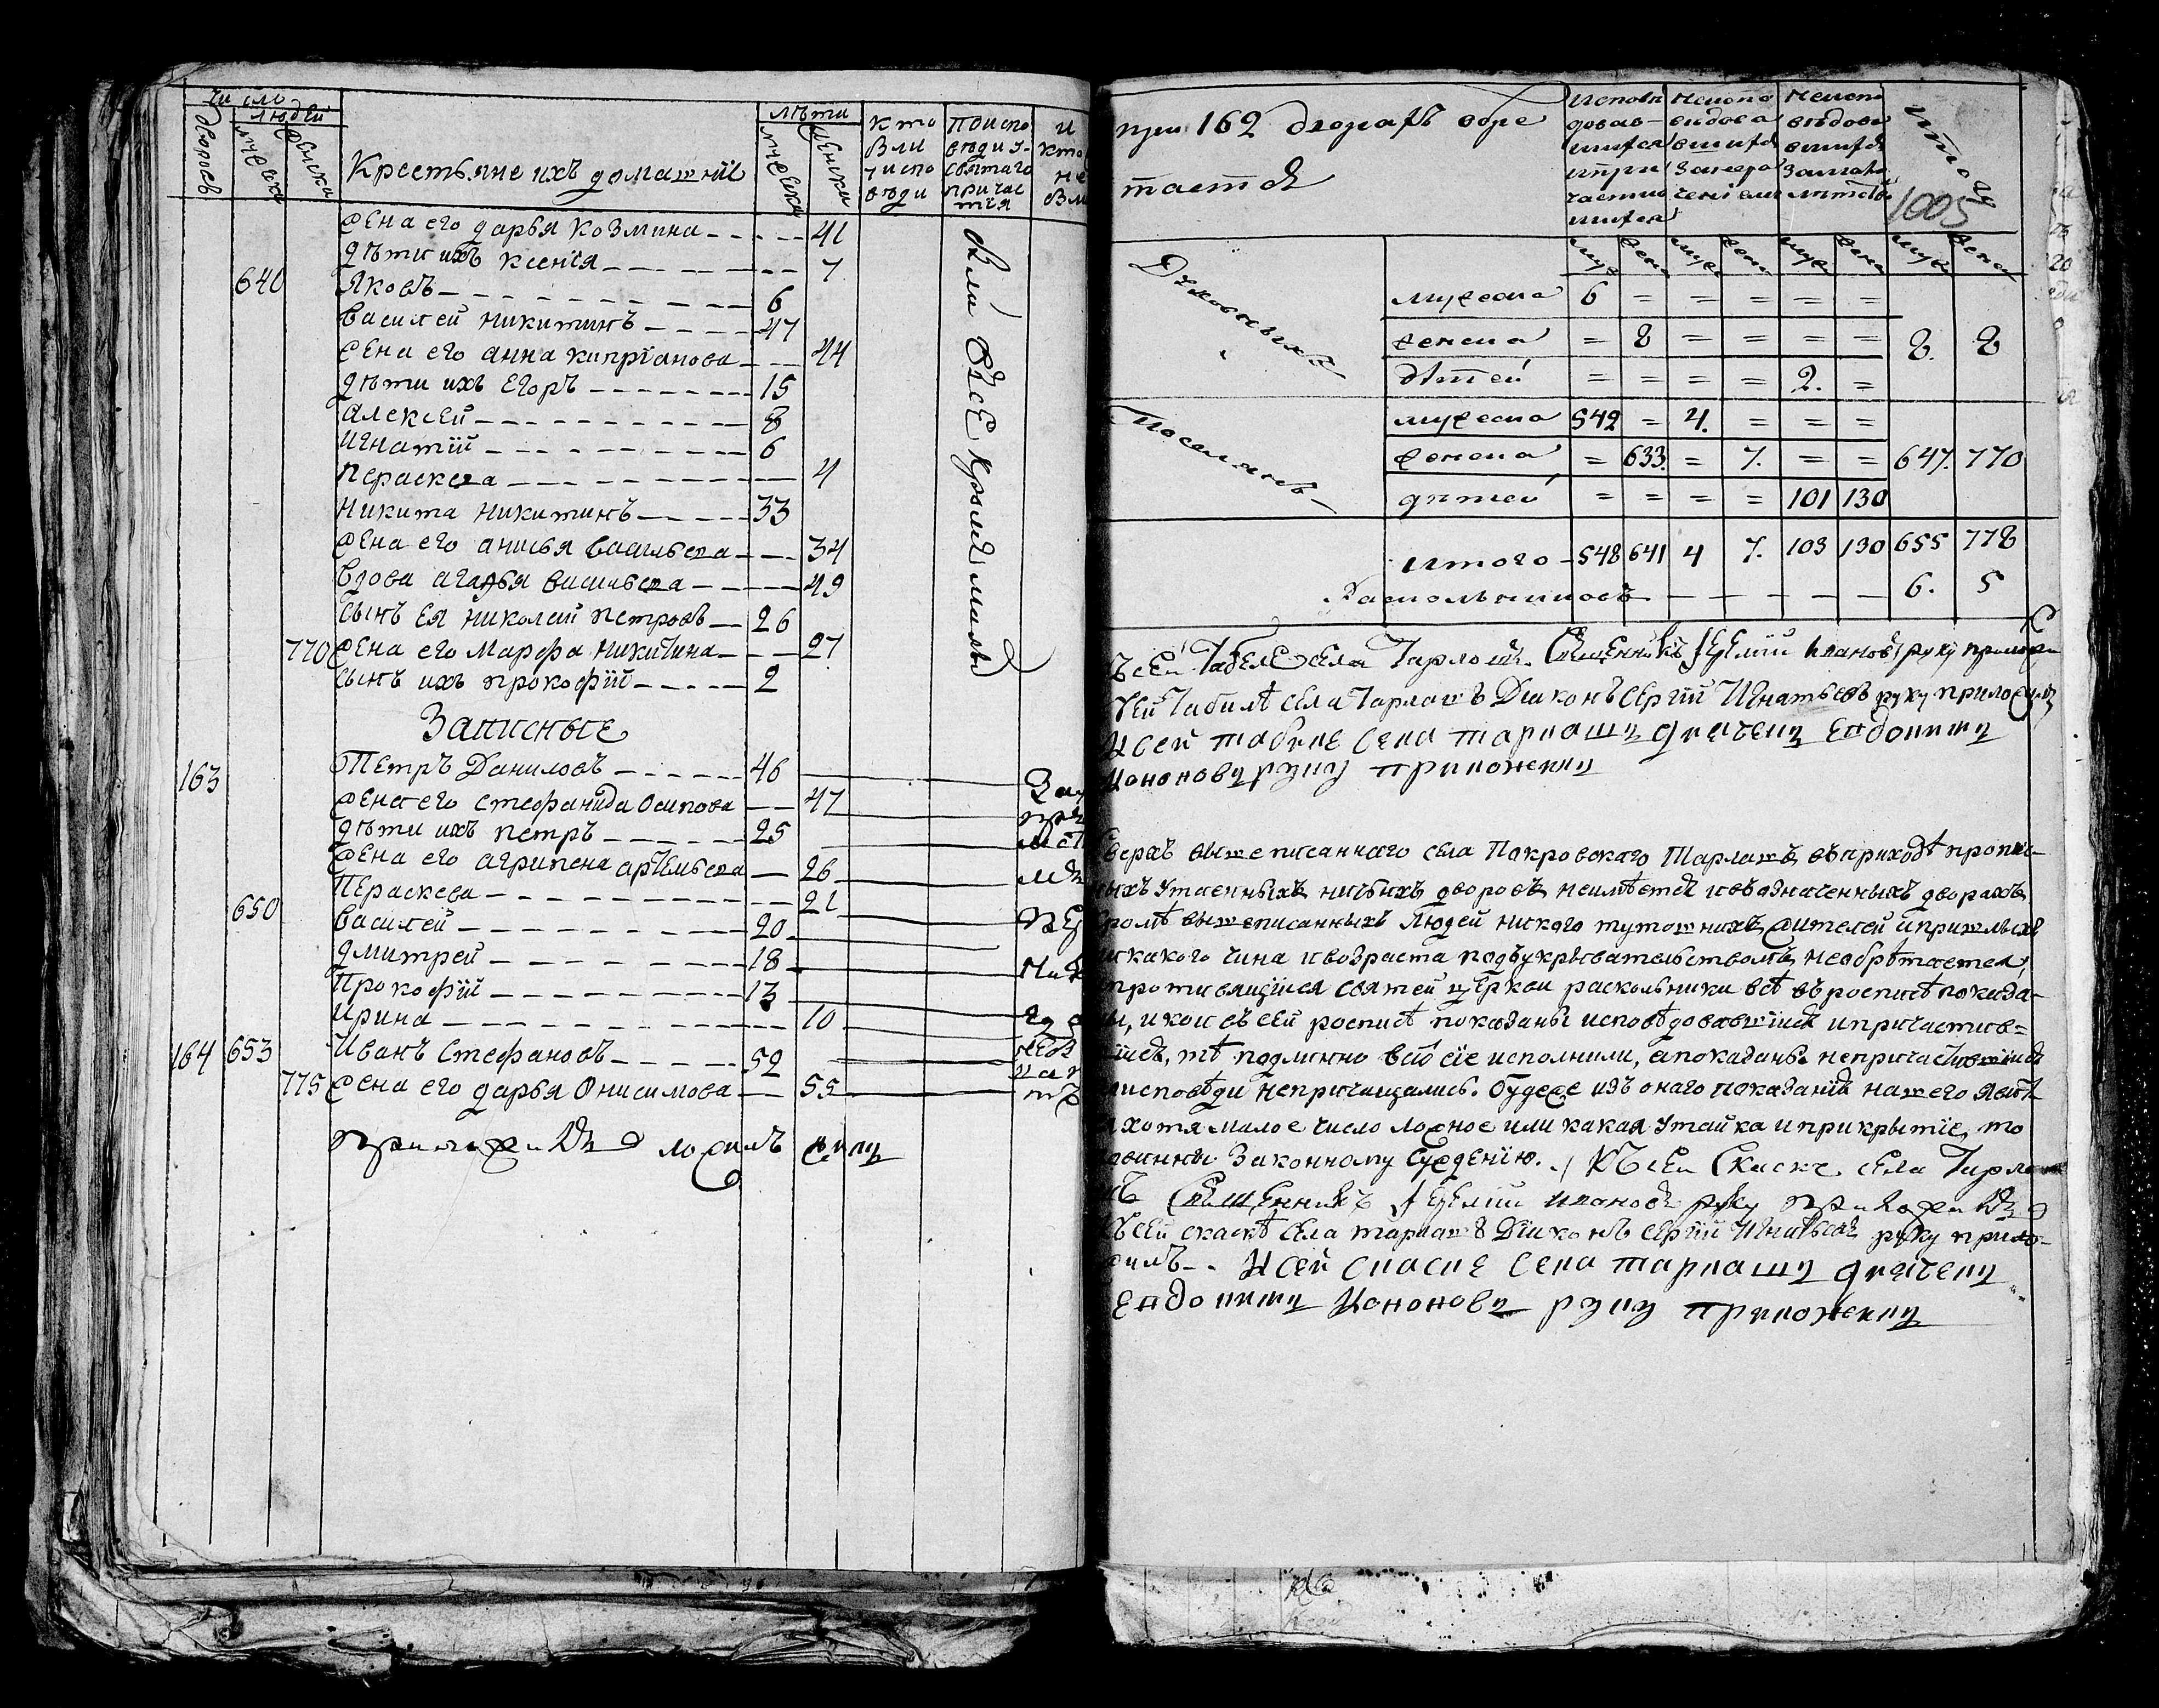 число
людей
дворовъ
мужска
женска
Крестьяне ихъ домашнїе
лѣта
мужска
женска
кто
были
у испо
вѣди
По испо
вѣди у
святаго
причас
тїя
и
кто
не
был
жена его дарья козмина 41
дѣти ихъ ксенїя 7
640 Яковъ 6
Василей никитинъ 47
жена его анна кипрїанова 44
дѣти ихъ Егоръ 15
алексѣй 8
Игнатїй 6
Пераскева 4
Никита никитинъ 33
жена его анисья васильева 34
Вдова агафья васильева 49
сынъ ея николай петровъ 26
770 жена его Марфа никитина 27
сынъ ихъ прокофїй 2
Записные
163 Петръ Даниловъ 46
жена его стефанида Осипова 47
дѣти ихъ петръ 25
жена его агрипена артемьева 26
Пераскева 21
650 Василей 20
дмитрей 18
Прокофїй 13
Ирина 10
164 653 Иванъ Стефановъ 52
775 жена его дарья Онисимова 55
при 162 дворахъ обре
тается
Исповѣ
довав
шихся
и при
частив
шихся
Неиспо
вѣдова
вшихся
Неиспо
вѣдова
вшихся
за мало
лѣтств
итого
1005
муж жен муж жен муж жен муж жен
Духовныхъ
мужеска 6 = = = = =
женска = 8 = = = = 8. 8
дѣтей = = = = 2. =
Поселянъ
мужеска 542 = 4. = = =
женска = 633. = 7. = = 647. 770
дѣтей = = = = 101 130
итого 548 641 4 7. 103 130 655 778
Раскольниковъ 6. 5
сей табели села Тарлашъ дїаконъ сергїй Игнатьевъ руку приложилъ
К сей табеле села тарлашъ дьячекъ Евдокимъ
Кононовъ руку приложилъ
сверхъ вышеписаннаго села Покровскаго Тарлашъ въ приходѣ пропис
ныхъ утаенныхъ ничьихъ дворовъ неимѣется и въ означенныхъ дворахъ
кромѣ вышеписанныхъ людей никого тутошнихъ жителей и пришлыхъ
никакого чина и возраста подъ укрывательствомъ необрѣтается,
противящїися святей церкви раскольники всѣ въ росписѣ показа
ны, и кои въ сей росписѣ показаны исповѣдовавшїися и причастив=
шїися, тѣ подлинно всѣ сїе исполнили, а показаны непричастившїися
исповѣди непричащались. Будеже изъ онаго показанїя нашего явитъ
хотя малое число ложное или какая утайка и прикрытїе, то
повинны законному сужденїю. Къ сей Скаске села Тарла
шъ Священникъ Иванов руку приложилъ
Къ сей скаскѣ села тарлашъ Дїаконъ сергїй Игнатьевъ руку прило
жилъ. К сей скаске села тарлашъ дьячекъ
Евдокимъ Кононовъ руку приложилъ